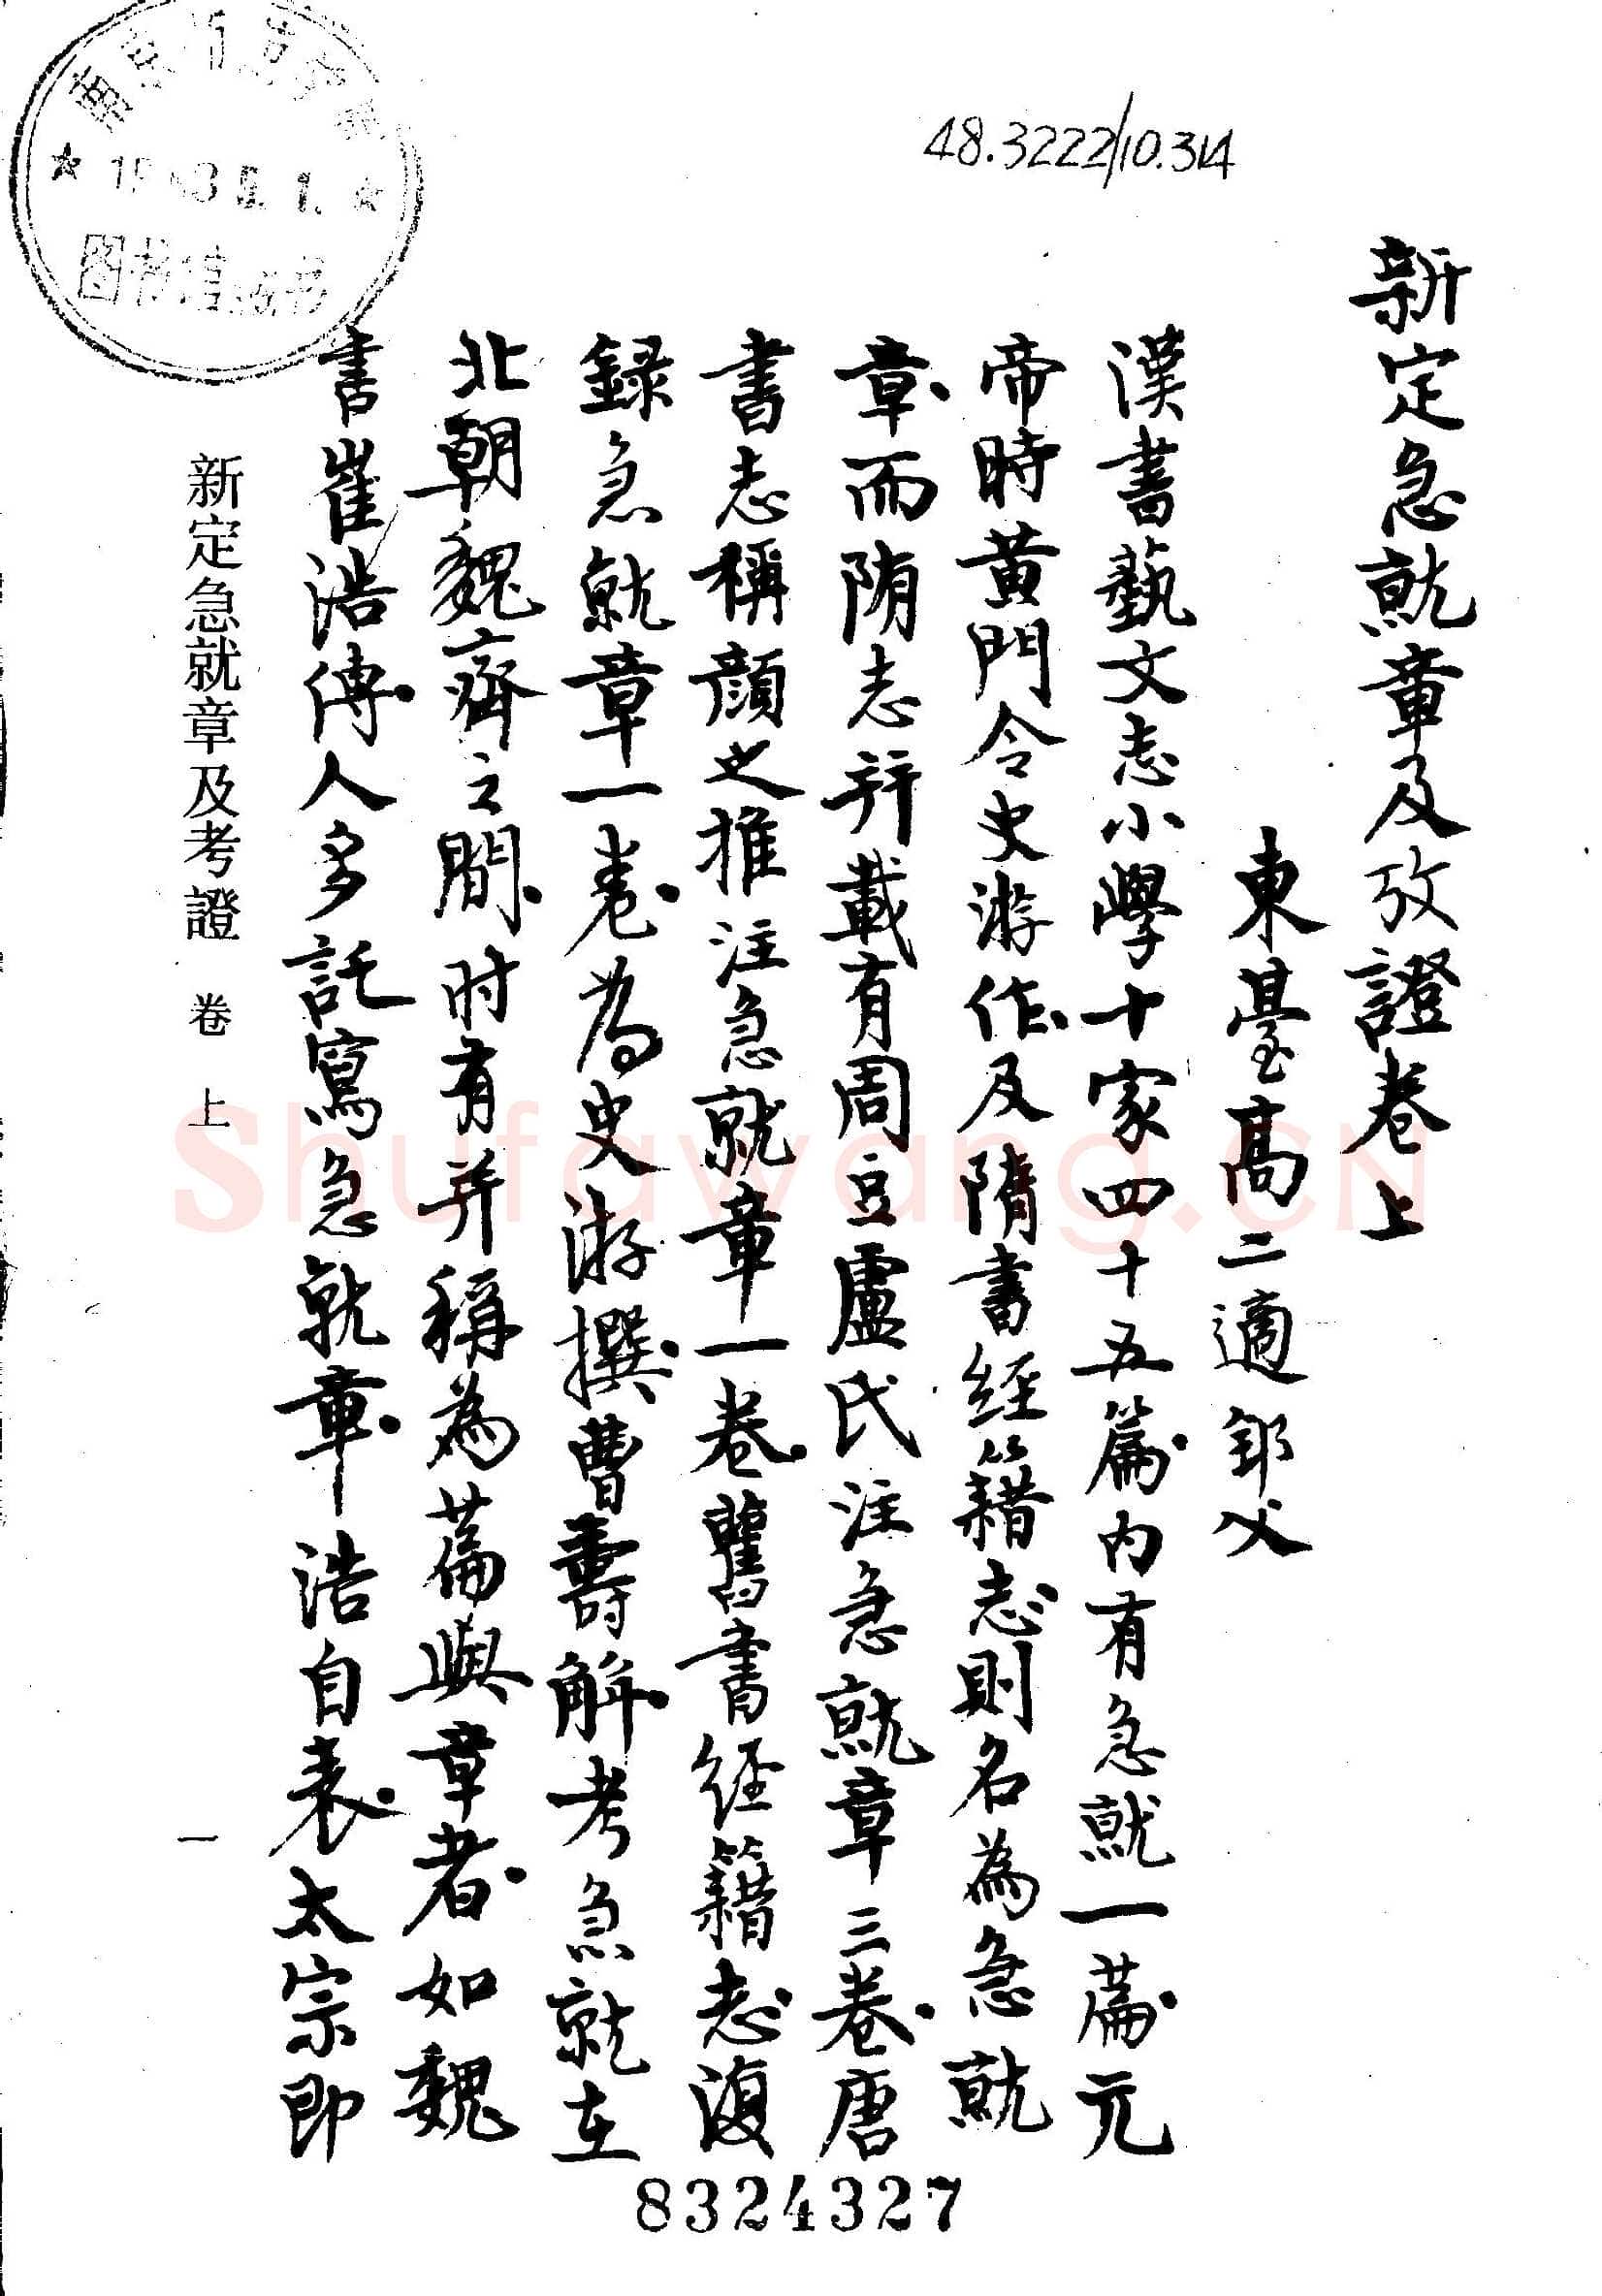 48.3222/10.314
新定急就章及攷證卷上
東臺高二適
漢書藝文志小學十家四十五篇内有急就一篇元
帝時黄門令史游作及隋書经籍志則名為急就
章而隋志并載有周豆盧氏注急就章三卷唐
書志稱顔之推注急就章一卷舊書经籍志復
録急就章一卷為史游撰曹壽解考急就在
北朝魏齊之間时有并稱為篇與章者如魏
書崔浩傳人多託寫急就章浩自表太宗即
新定急就章及考證 卷 上
一
图书馆藏书
8324327
Shufawang.CN